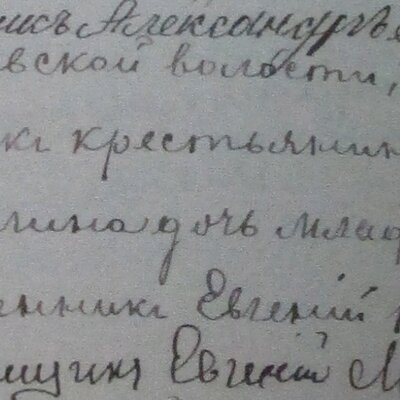 икъ Александръ
вской волости,
къ крестьянин
лина дочь млад
енникъ Евгений
мщикъ Евгений М